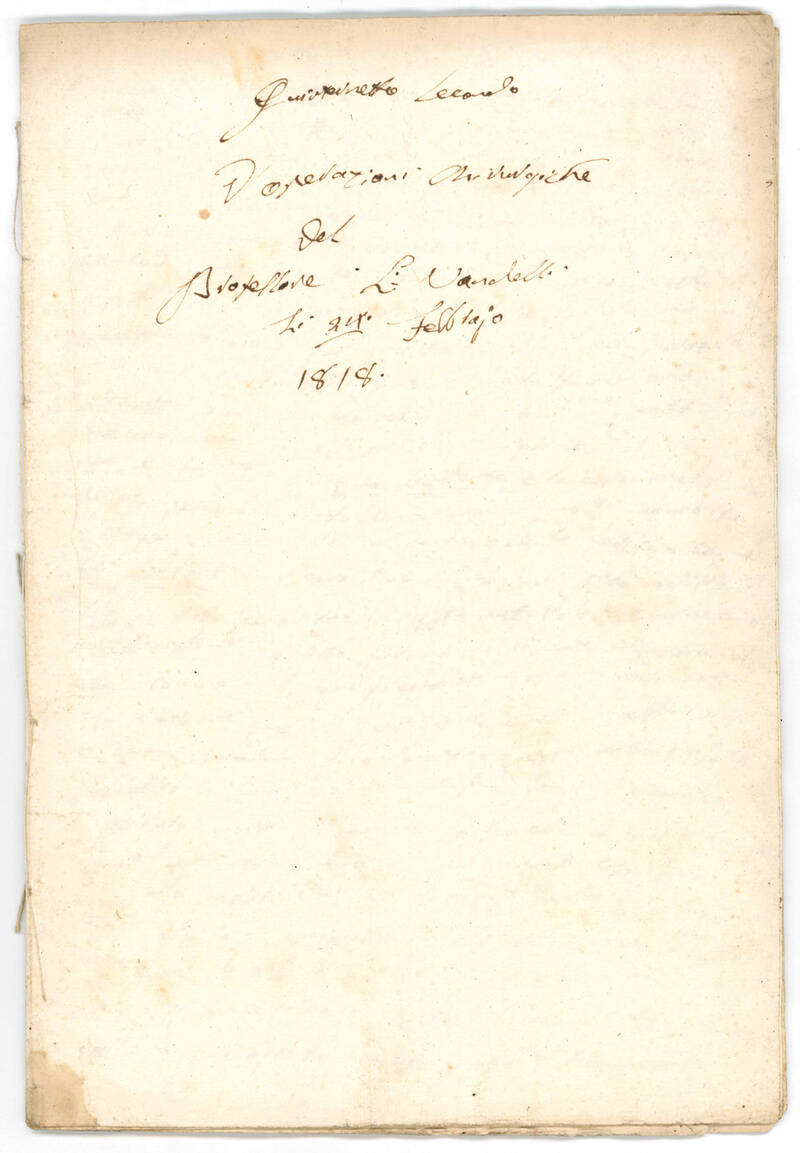 Quinternetto Secondo
D'operazioni Chirurgiche
Del
Professore L. Vandelli
Li Febbrajo
1818.